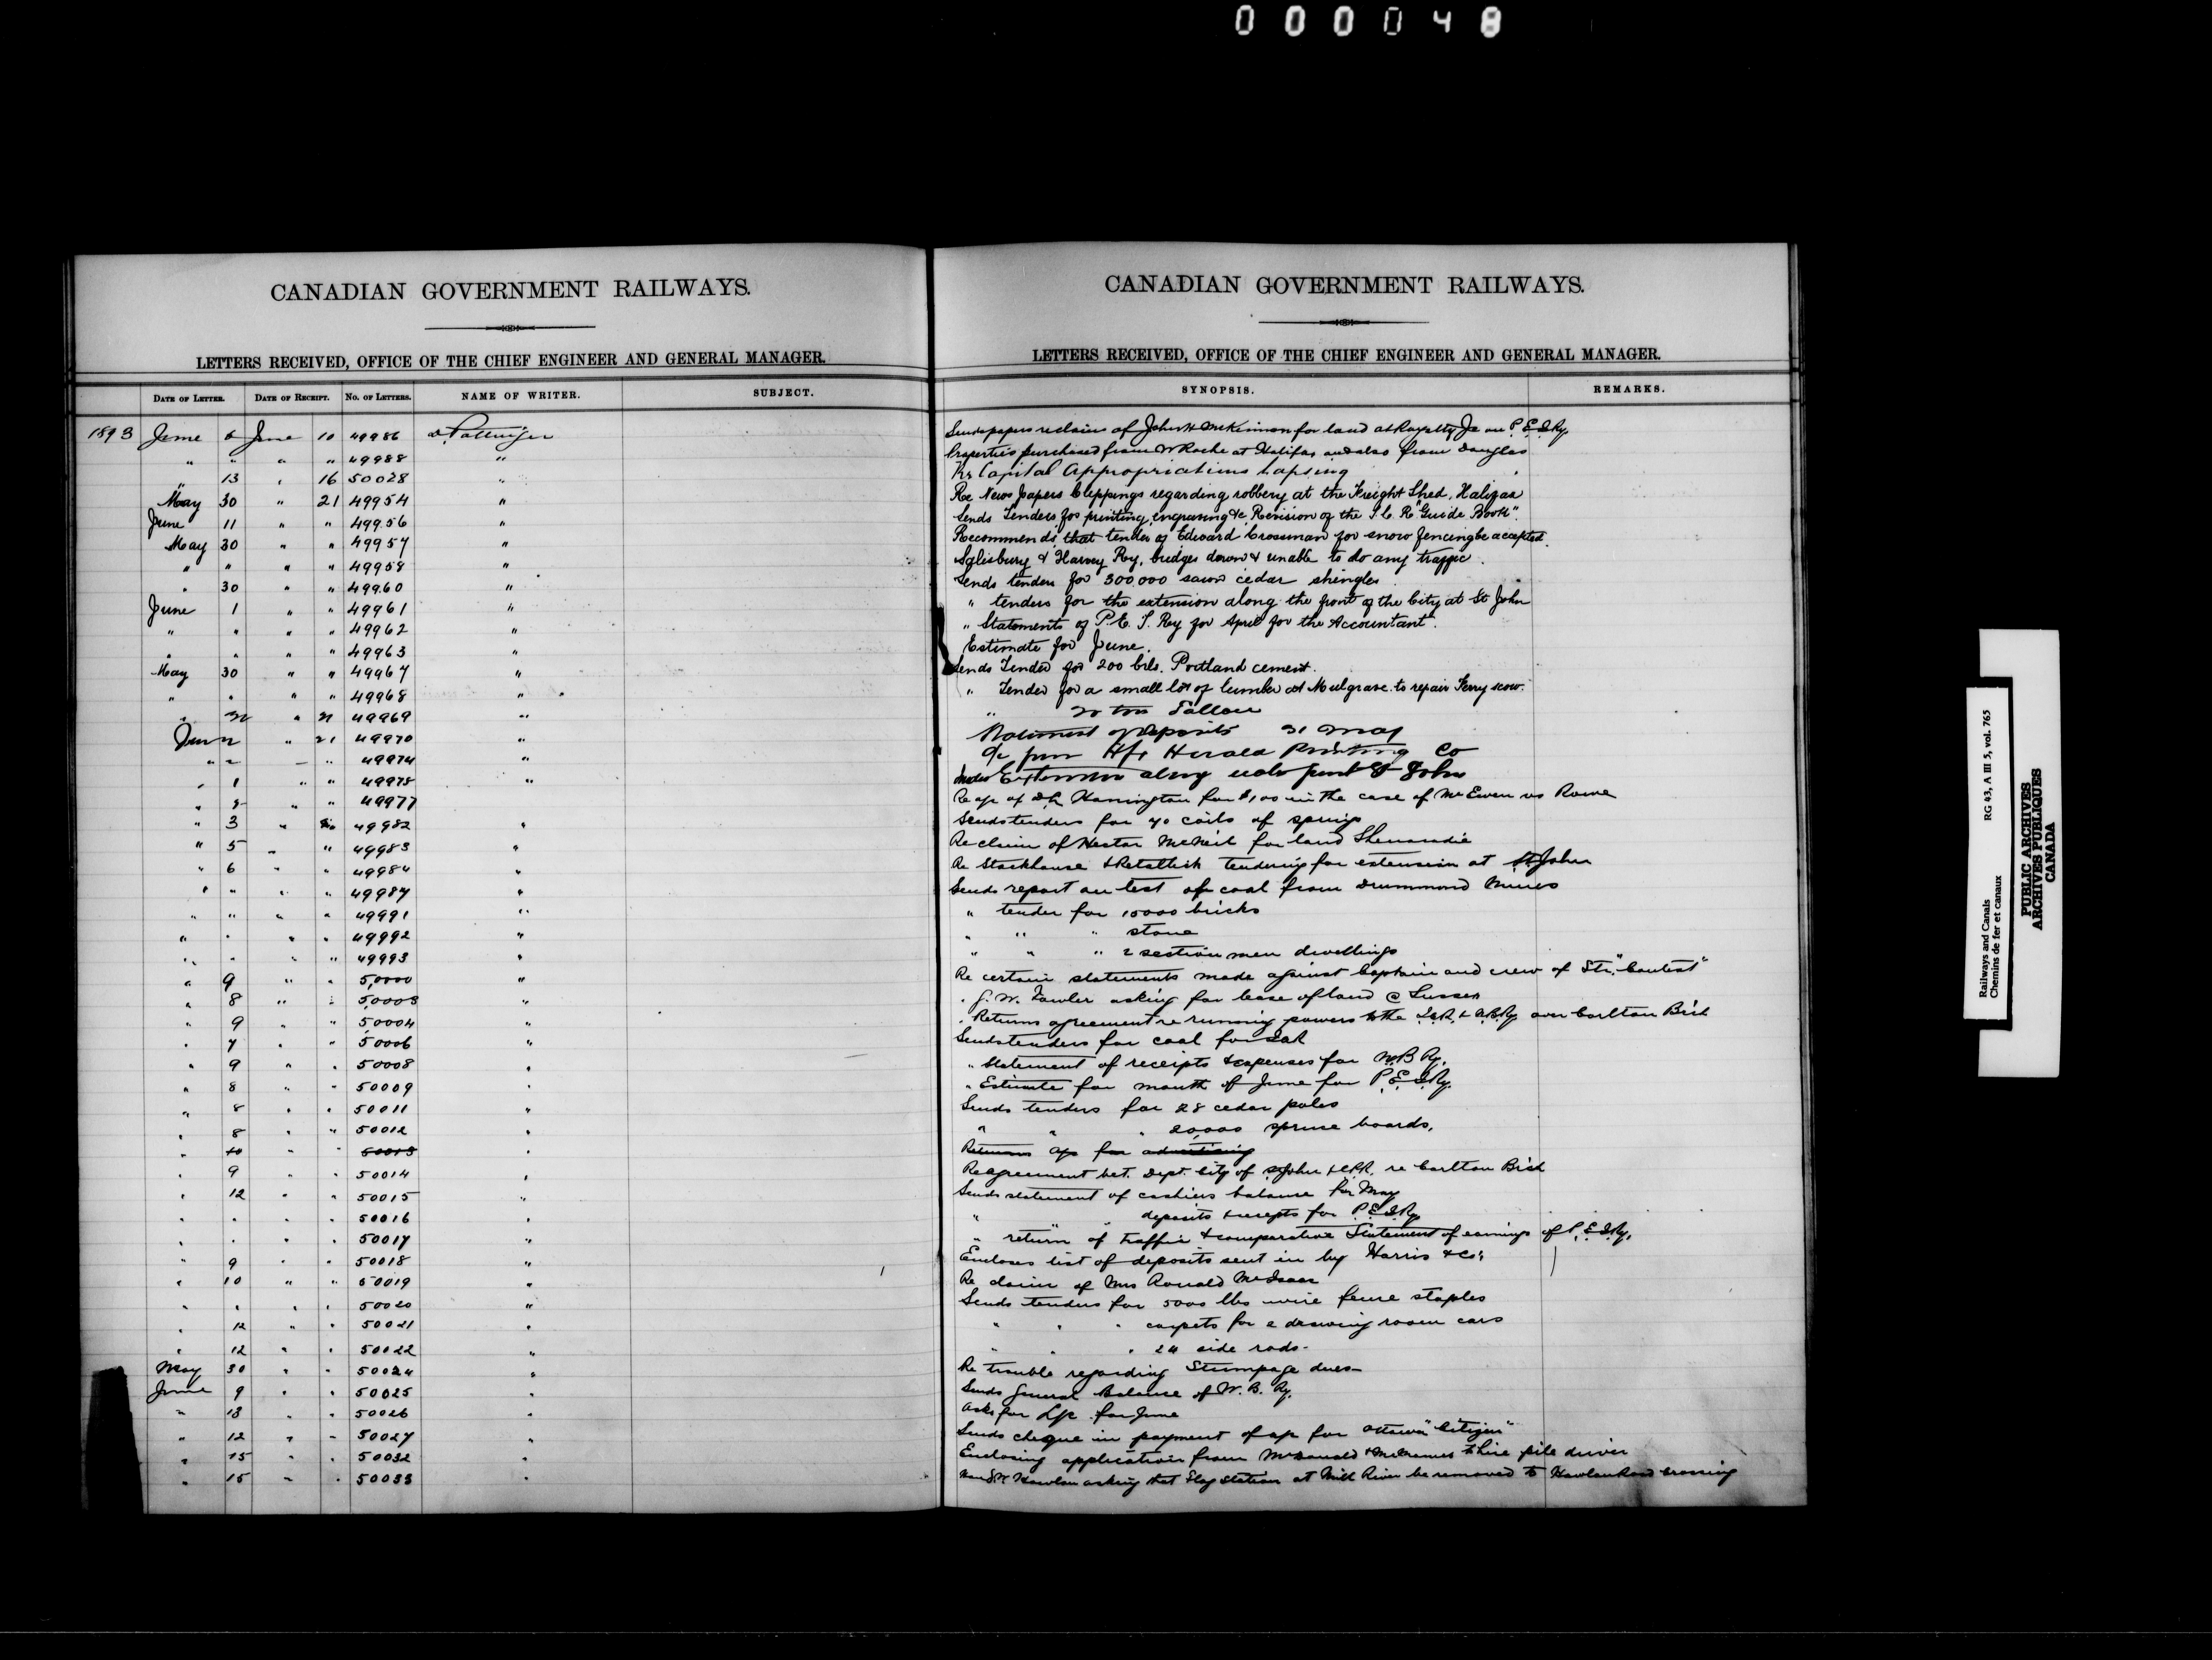 000048
CANADIAN GOVERNMENT RAILWAYS.
LETTERS RECEIVED, OFFICE OF THE CHIEF ENGINEER AND GENERAL MANAGER.
DATE OF LETTER. DATE OF RECEIPT. No. OF LETTERS. NAME OF WRITER. SUBJECT.
1893 June 6 June 10 49986 D. Pottinger
" " " " 49988 "
" 13 " 16 50028 "
May 30 " 21 49954 "
June 11 " " 49956 "
May 30 " " 49957 "
" " " " 49958 "
" 30 " " 49960 "
June 1 " " 49961 "
" " " " 49962 "
" " " " 49963 "
May 30 " " 49967 "
" " " " 49968 "
" " 21 49969 "
June 2 " 21 49970 "
" 2 " " 49974 "
" 1 " " 49975 "
" " " 49977
" 3 " 49982 "
" 5 " " 49983 "
" 6 " " 49984 "
" " " " 49987 "
" " " " 49991 "
" " " " 49992 "
" " " " 49993 "
" 9 " " 50000 "
" 8 " " 50003 "
" 9 " " 50004 "
" 7 " " 50006 "
" 9 " " 50008 "
" 8 " " 50009 "
" 8 " " 50011 "
" 8 " " 50012 "
" 10 " " 50013 "
" 9 " " 50014 "
" 12 " " 50015 "
" " " " 50016 "
" " " " 50017 "
" 9 " " 50018 "
" 10 " " 50019 "
" " " " 50020 "
" 12 " " 50021 "
" 12 " " 50022 "
May 30 " " 50024 "
June 9 " " 50025 "
" 13 " " 50026 "
" 12 " " 50027 "
" 15 " " 50032 "
" 15 " " 50033 "
CANADIAN GOVERNMENT RAILWAYS.
LETTERS RECEIVED, OFFICE OF THE CHIEF ENGINEER AND GENERAL MANAGER.
SYNOPSIS. REMARKS.
Sends papers re claim of John H McKinnon for land at Royalty Jc on P.E.I.Ry.
Properties purchased from W Roche at Halifax and also from Douglas
Re Capital Appropriations Lapsing
Re News papers Clippings regarding robbery at the Freight Shed, Halifax
Sends Tenders for printing, engraving &c, Revision of the I.C.R. "Guide Book".
Recommends that tender of Edward Crossman for snow fencing be accepted.
Salisbury & Harvey Ry, bridges down & unable to do any traffic.
Sends tenders for 300,000 sawn cedar shingles
" tenders for the extension along the front of the City at St John
" Statements of P.E.I. Ry for April for the Accountant.
Estimate for June.
Sends Tender for 200 brls. Portland cement.
" Tender for a small lot of lumber at Mulgrave. to repair Ferry scow.
" 20 tons Tallow
Statement of deposits 31 May
a/c from Hfx Herald Printing Co
Extension along front St John
Re a/c of Harrington for $100 in the case of McEwen vs Rowe
Sends tenders for 40 coils of springs
Re claim of Hector McNeil for land Shenacadie
Re Stackhouse & Retallick tendering for extension at St John
Sends report on test of coal from Drummond Mines
" tender for 10000 bricks
" " " stone
" " " 2 section men dwellings
Re certain statements made against Captain and crew of Str. "Contest"
" G. W. Fowler asking for lease of land @ Sussex
" Returns agreement re running powers to the over Carlton Brch
Sends tenders for coal for ICR
" Statement of receipts & expenses for W.B Ry.
" Estimate for month of June for P.E.I.Ry.
Sends tenders for 28 cedar poles
" " " 20,000 spruce boards.
Returns a/c for advertising
Re agreement bet. Dept. City of St John & CPR. re Carlton Brch
Sends statement of cashiers balance for May
" " " deposits & receipts for P.E.I.Ry
" return of traffic & comparative Statement of earnings of P.E.I.Ry.
Encloses list of deposits sent in by Harris & Co.
Re claim of Mrs Ronald McIsaac
Sends tenders for 5000 lbs wire fence staples
" " " carpets for 2 drawing room cars
" " " 24 side rods.
Re trouble regarding Stumpage dues
Sends General Balance of W. B. Ry.
Asks for L/c for June
Sends cheque in payment of a/c for Ottawa "Citizen"
Enclosing application from McDonald & to hire pile driver
Howlan asking that Flag Station at Mill River be removed to Howlan Road crossing
Railways and Canals RG 43, A III 5, vol. 765
Chemins de fer et canaux
PUBLIC ARCHIVES
ARCHIVES PUBLIQUES
CANADA